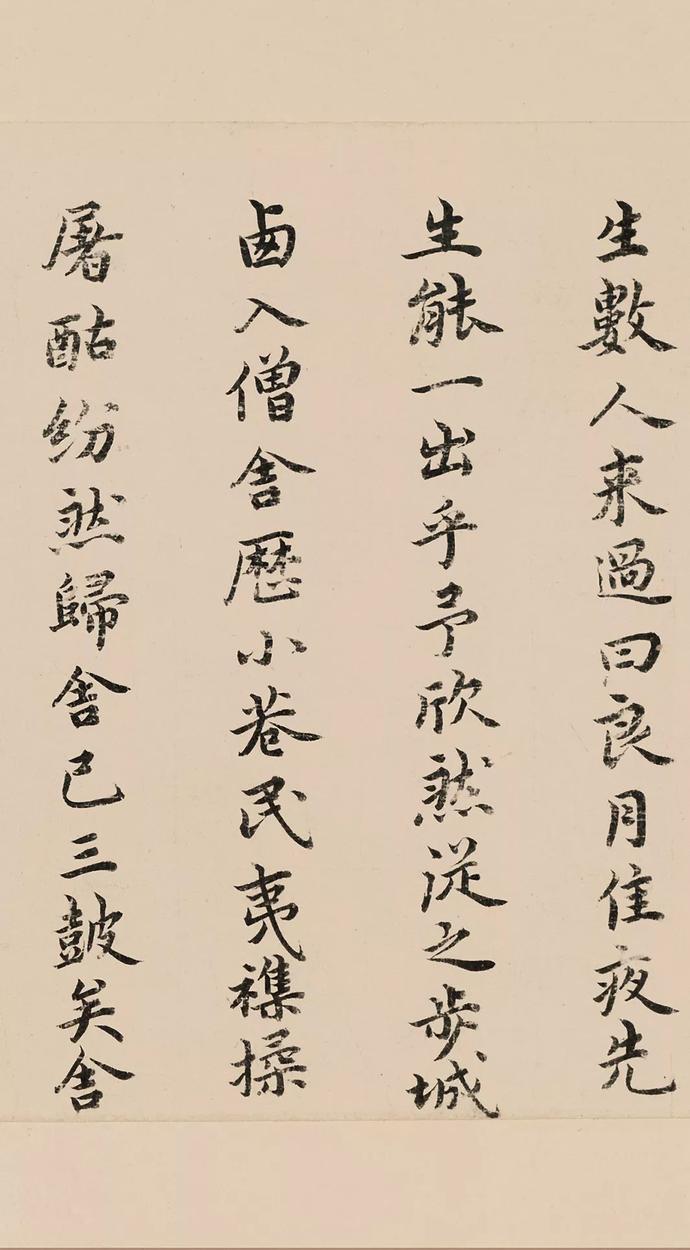 生數人来過曰良月佳夜先
生能一出乎予欣然從之步城
卥入僧舍歷小巷民夷襍揉
屠酤紛然歸舍已三皷矣舍